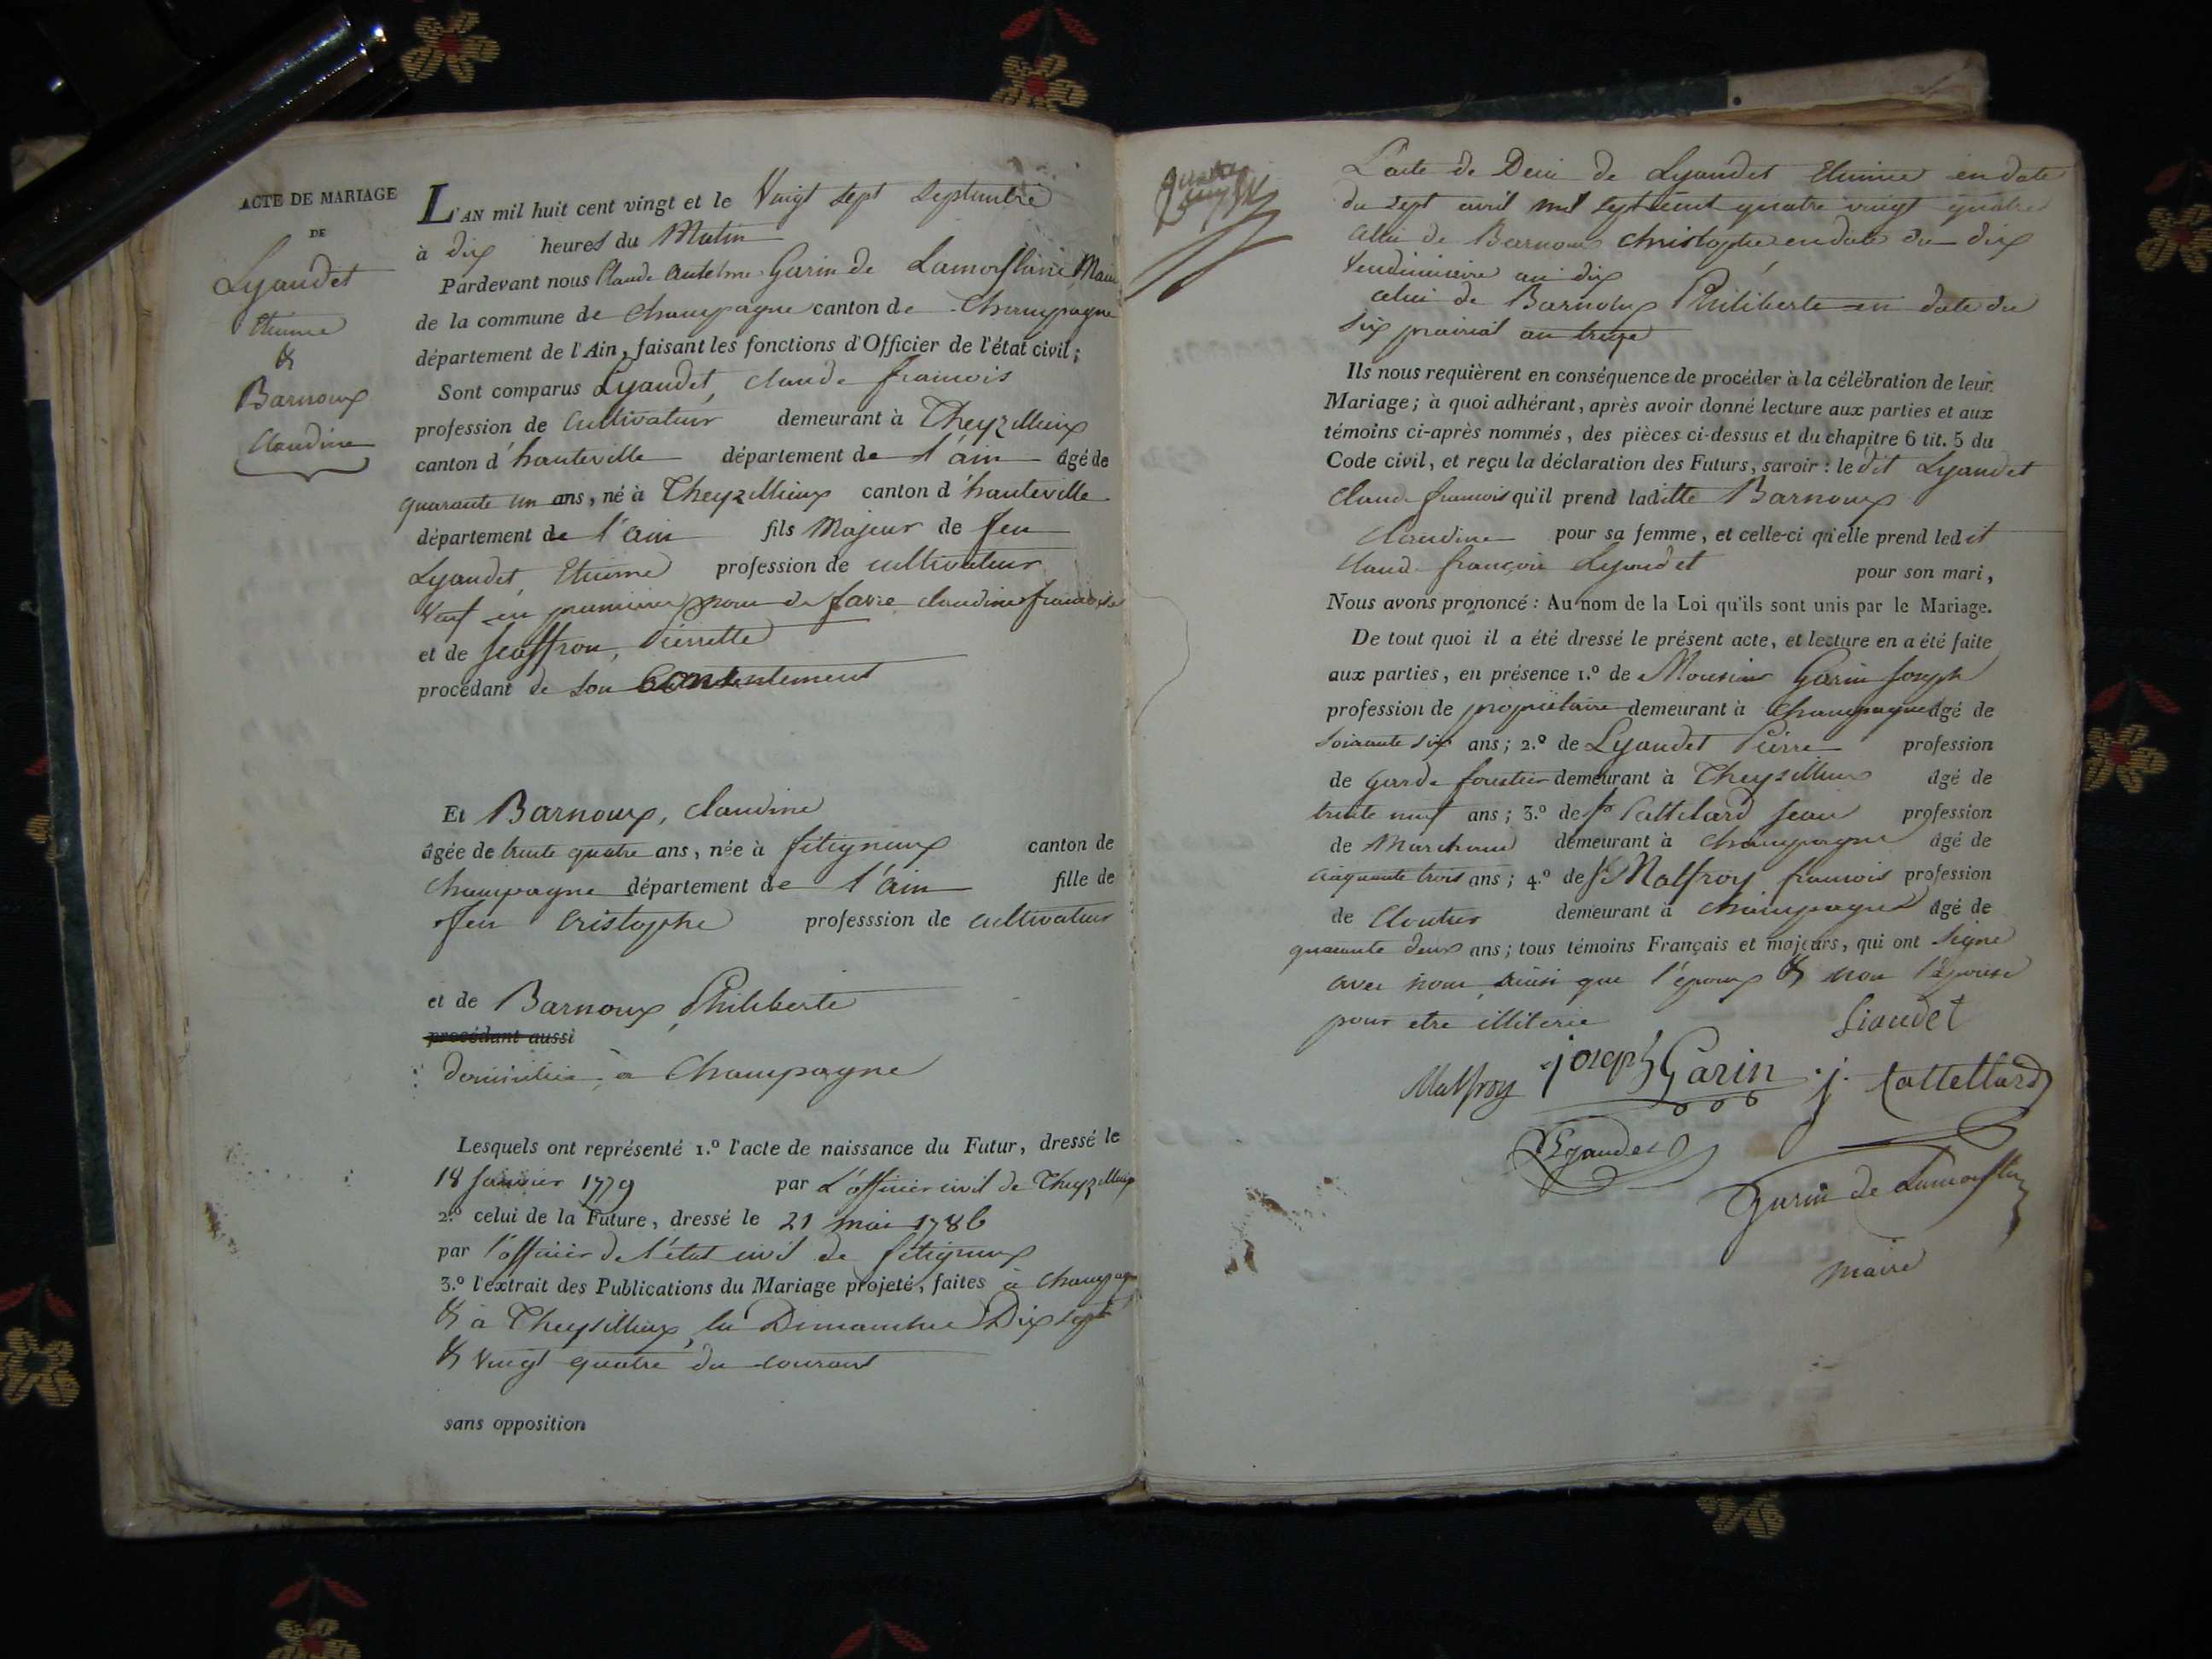 ACTE DE MARIAGE
DE
Lyaudet
Etienne
&
Barnoux
Claudine
L'AN mil huit cent vingt et le Vingt sept Septembre
à dix heures du Matin
Pardevant nous Claude Antelme Garin de Lamorflanc Maire
de la commune de Champagne canton de Champagne
département de l'Ain, faisant les fonctions d'Officier de l'état civil;
Sont comparus Lyaudet, Claude francois
profession de Cultivateur demeurant à Theyzillieux
canton d'hauteville département de l'ain âgé de
quarante un ans, né à Theyzillieux canton d'hauteville
département de l'ain fils Majeur de feu
Lyaudet, Etienne profession de cultivateur
Veuf en premiere de favre claudine francoise
et de Jeaffron, Pierrette
procédant de son Consentement
Et Barnoux, Claudine
âgée de trente quatre ans, née à fitigneux canton de
Champagne département de l'ain fille de
feu Cristophe professsion de cultivateur
et de Barnoux, Philiberte
procédant aussi
domiciliée à Champagne
Lesquels ont représenté 1.º l'acte de naissance du Futur, dressé le
18 Janvier 1779 par L'officier civil de Theyzillieux
2.º celui de la Future, dressé le 21 mai 1786
par l'officier de l'état civil de fitigneux
3.º l'extrait des Publications du Mariage projeté, faites à Champagne
& à Theysillieux, les Dimanches Dix sept
& Vingt quatre du courant
sans opposition
L'acte de Deces de Lyaudet Etienne en date
du sept avril mil sept cent quatre vingt quatre
Celui de Barnoux Christophe en date du dix
Vendimiaire an dix
celui de Barnoux Philiberte en date du
six prairial an treize
Ils nous requièrent en conséquence de procéder à la célébration de leur
Mariage; à quoi adhérant, après avoir donné lecture aux parties et aux
témoins ci-après nommés, des pièces ci-dessus et du chapitre 6 tit. 5 du
Code civil, et reçu la déclaration des Futurs, savoir: ledit Lyaudet
Claude francois qu'il prend laditte Barnoux
Claudine pour sa femme, et celle-ci qu'elle prend ledit
Claude françois Lyaudet pour son mari,
Nous avons prononcé: Au nom de la Loi qu'ils sont unis par le Mariage.
De tout quoi il a été dressé le présent acte, et lecture en a été faite
aux parties, en présence 1.º de Monsieur Garin Joseph
profession de propriétaire demeurant à Champagne âgé de
soixante six ans; 2.º de Lyaudet Pierre profession
de garde forestier demeurant à Theysillieux âgé de
trente neuf ans; 3.º de Sr Cattelard Jean profession
de Marchand demeurant à Champagne âgé de
cinquante trois ans; 4.º de Sr Malfroy francois profession
de Cloutier demeurant à Champagne âgé de
quarante deux ans; tous témoins Français et majeurs, qui ont Signé
avec nous ainsi que l'époux & non l'épouse
pour etre illiterée
Liaudet
Malfroy joseph Garin j. Cattellard
Lyaudet
Garin de Lamorflanc
maire